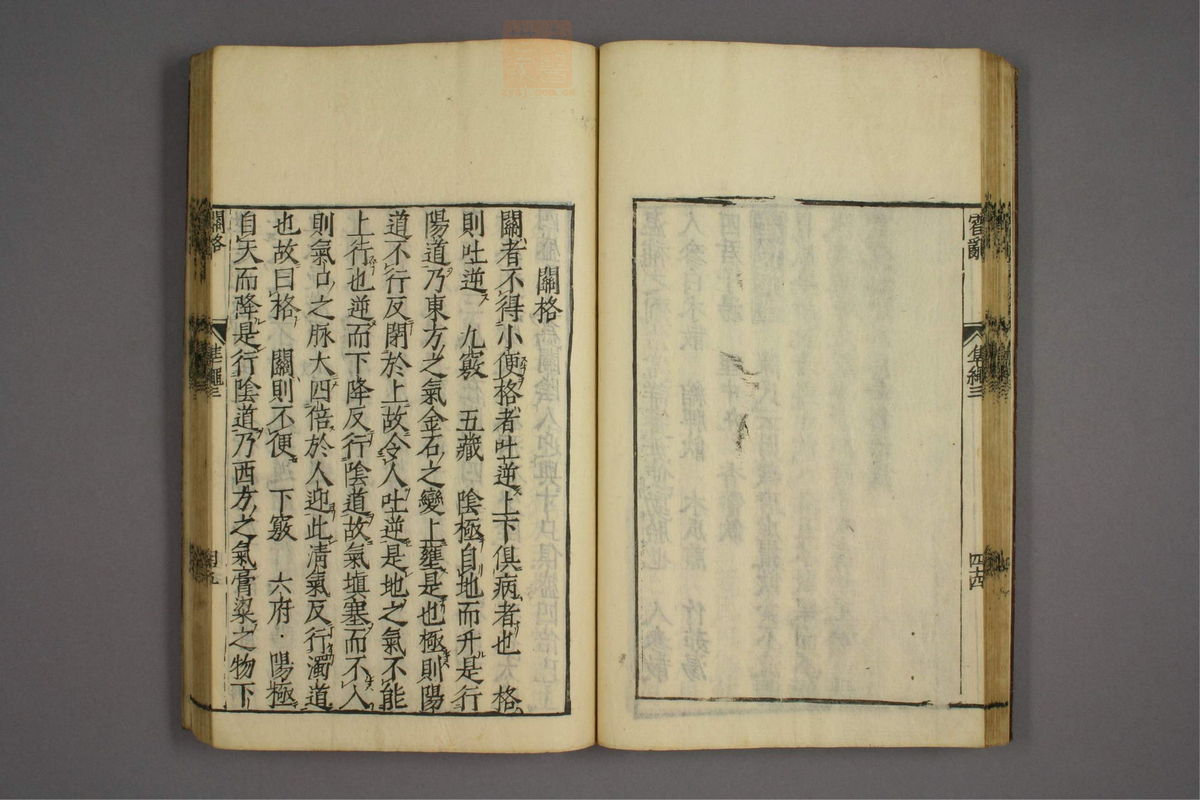 霍亂
集繩三
關格
關者不得小便格者吐逆上下俱病者也　格
則吐逆　九竅　五藏　陰極自地而升是行
陽道乃東方之氣金石之變上壅是也極則陽
道不行反閉於上故令人吐逆是地之氣不能
上行也逆而下降反行陰道故氣填塞而不入
則氣口之脉大四倍於人迎此清氣反行濁道
也故曰格　關則不便　下竅　六府．陽極
自天而降是行陰道乃西方之氣膏粱之物下
關格
集繩三